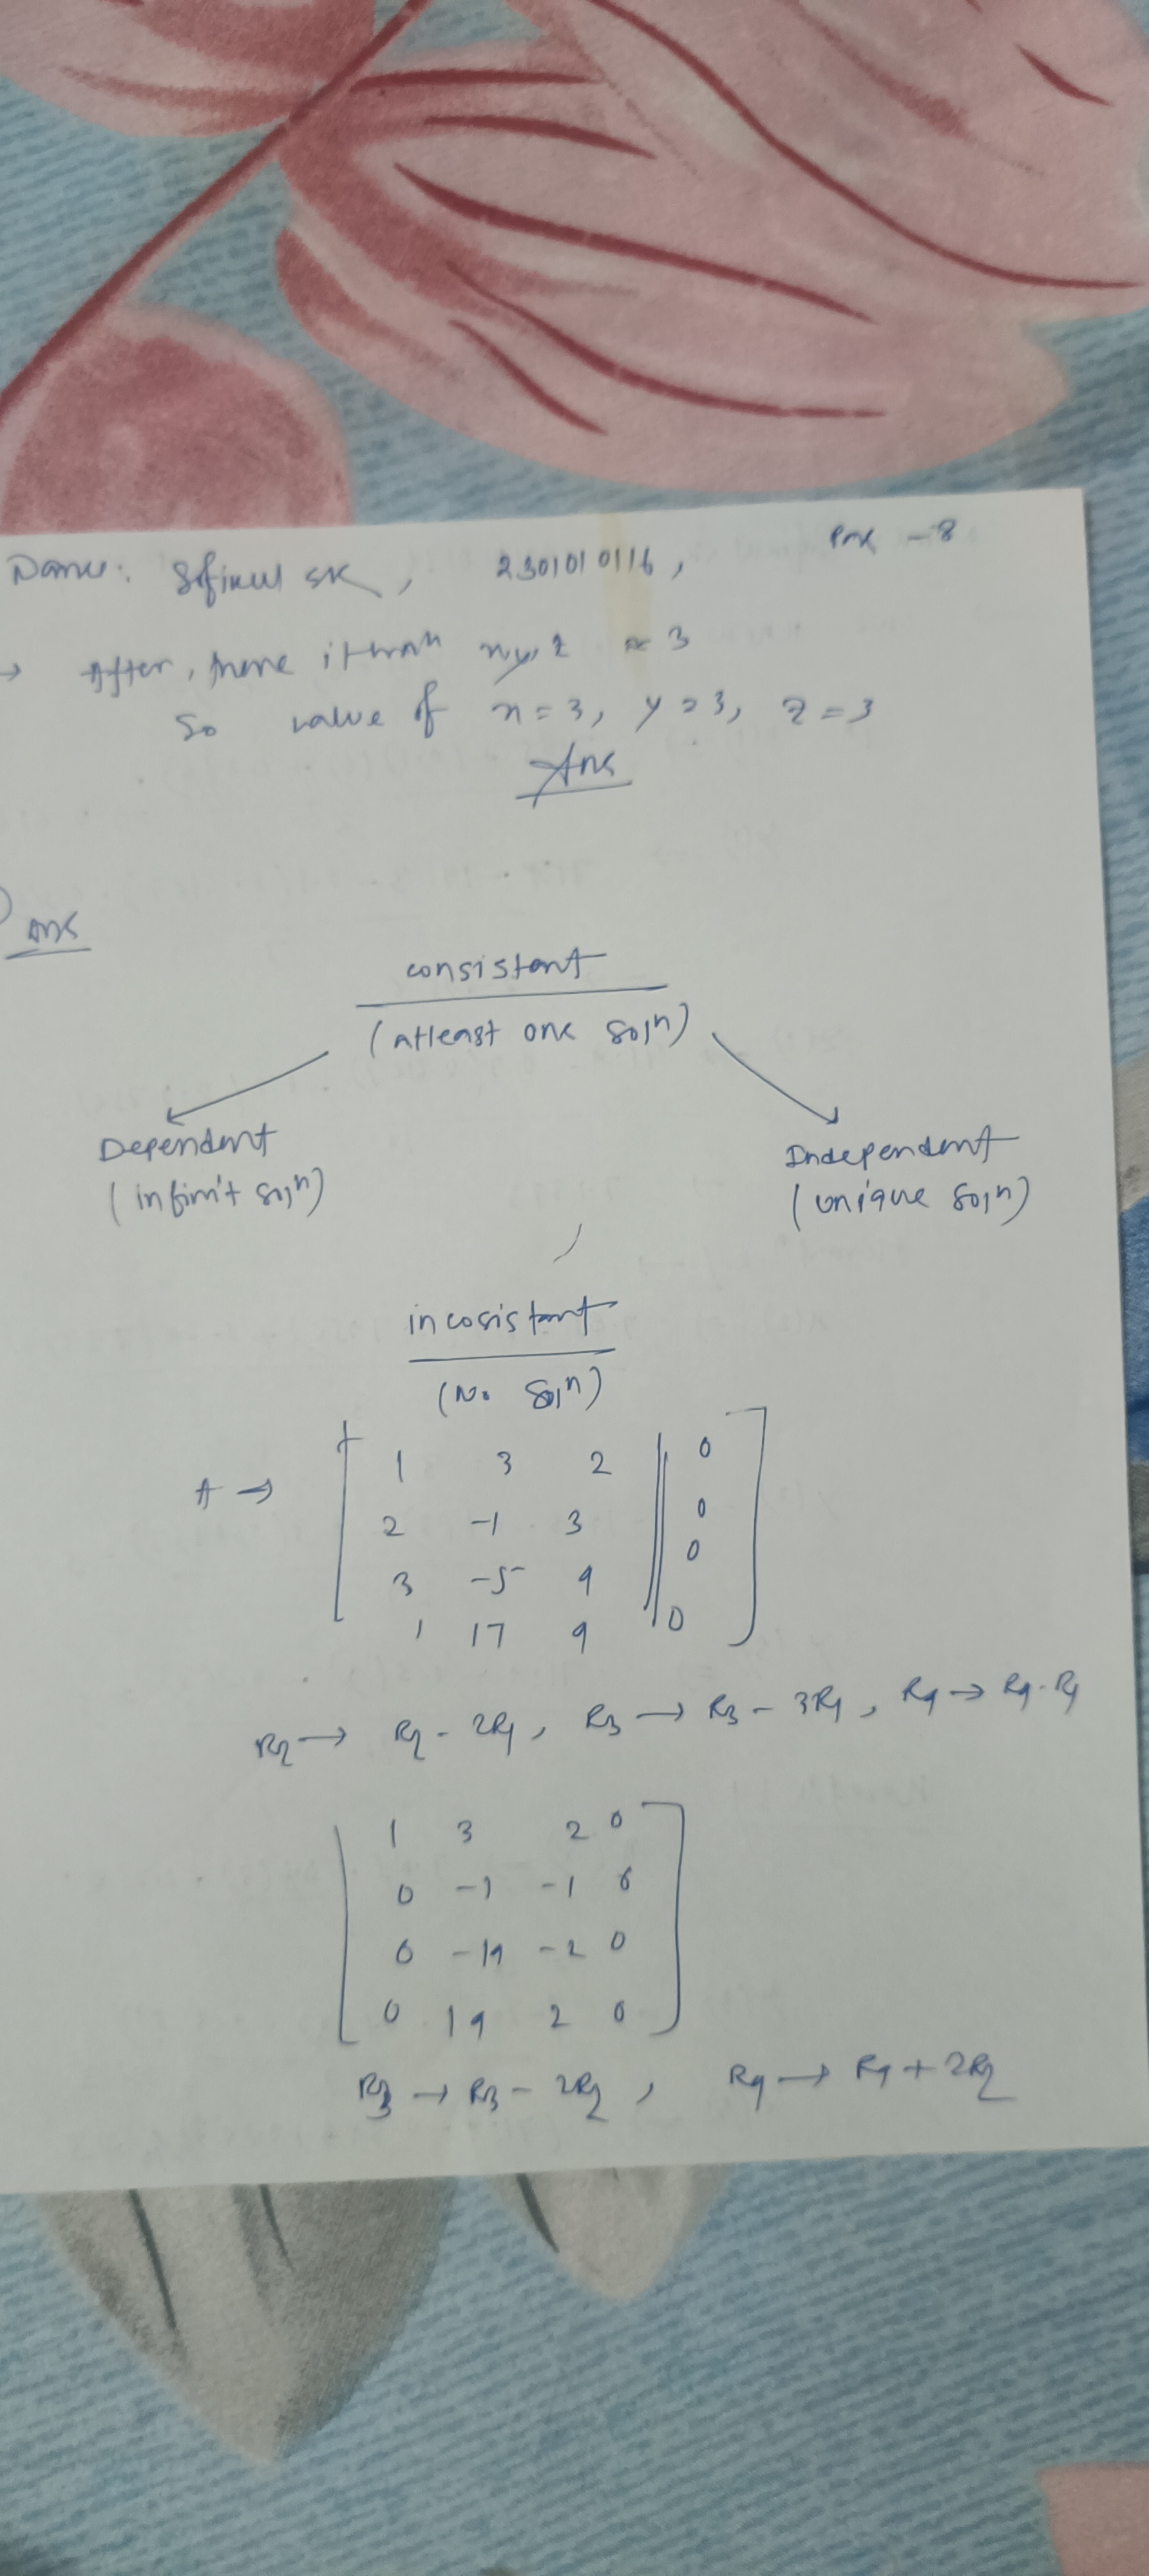 Name: Sofikul SK, 2301010116, Page - 8
→ After, more itteration x, y, z ≈ 3
So value of x = 3, y = 3, z = 3
Ans
Ans
consistant
(atleast one soln)
Dependent Independent
(infinit soln) (unique soln)
incosistant
(No soln)
A → [ 1 3 2 || 0
2 -1 3 0
3 -5 4 0
1 17 4 0 ]
R2 → R2 - 2R1, R3 → R3 - 3R1, R4 → R4 - R1
[ 1 3 2 0
0 -7 -1 0
0 -14 -2 0
0 14 2 0 ]
R3 → R3 - 2R2, R4 → R4 + 2R2